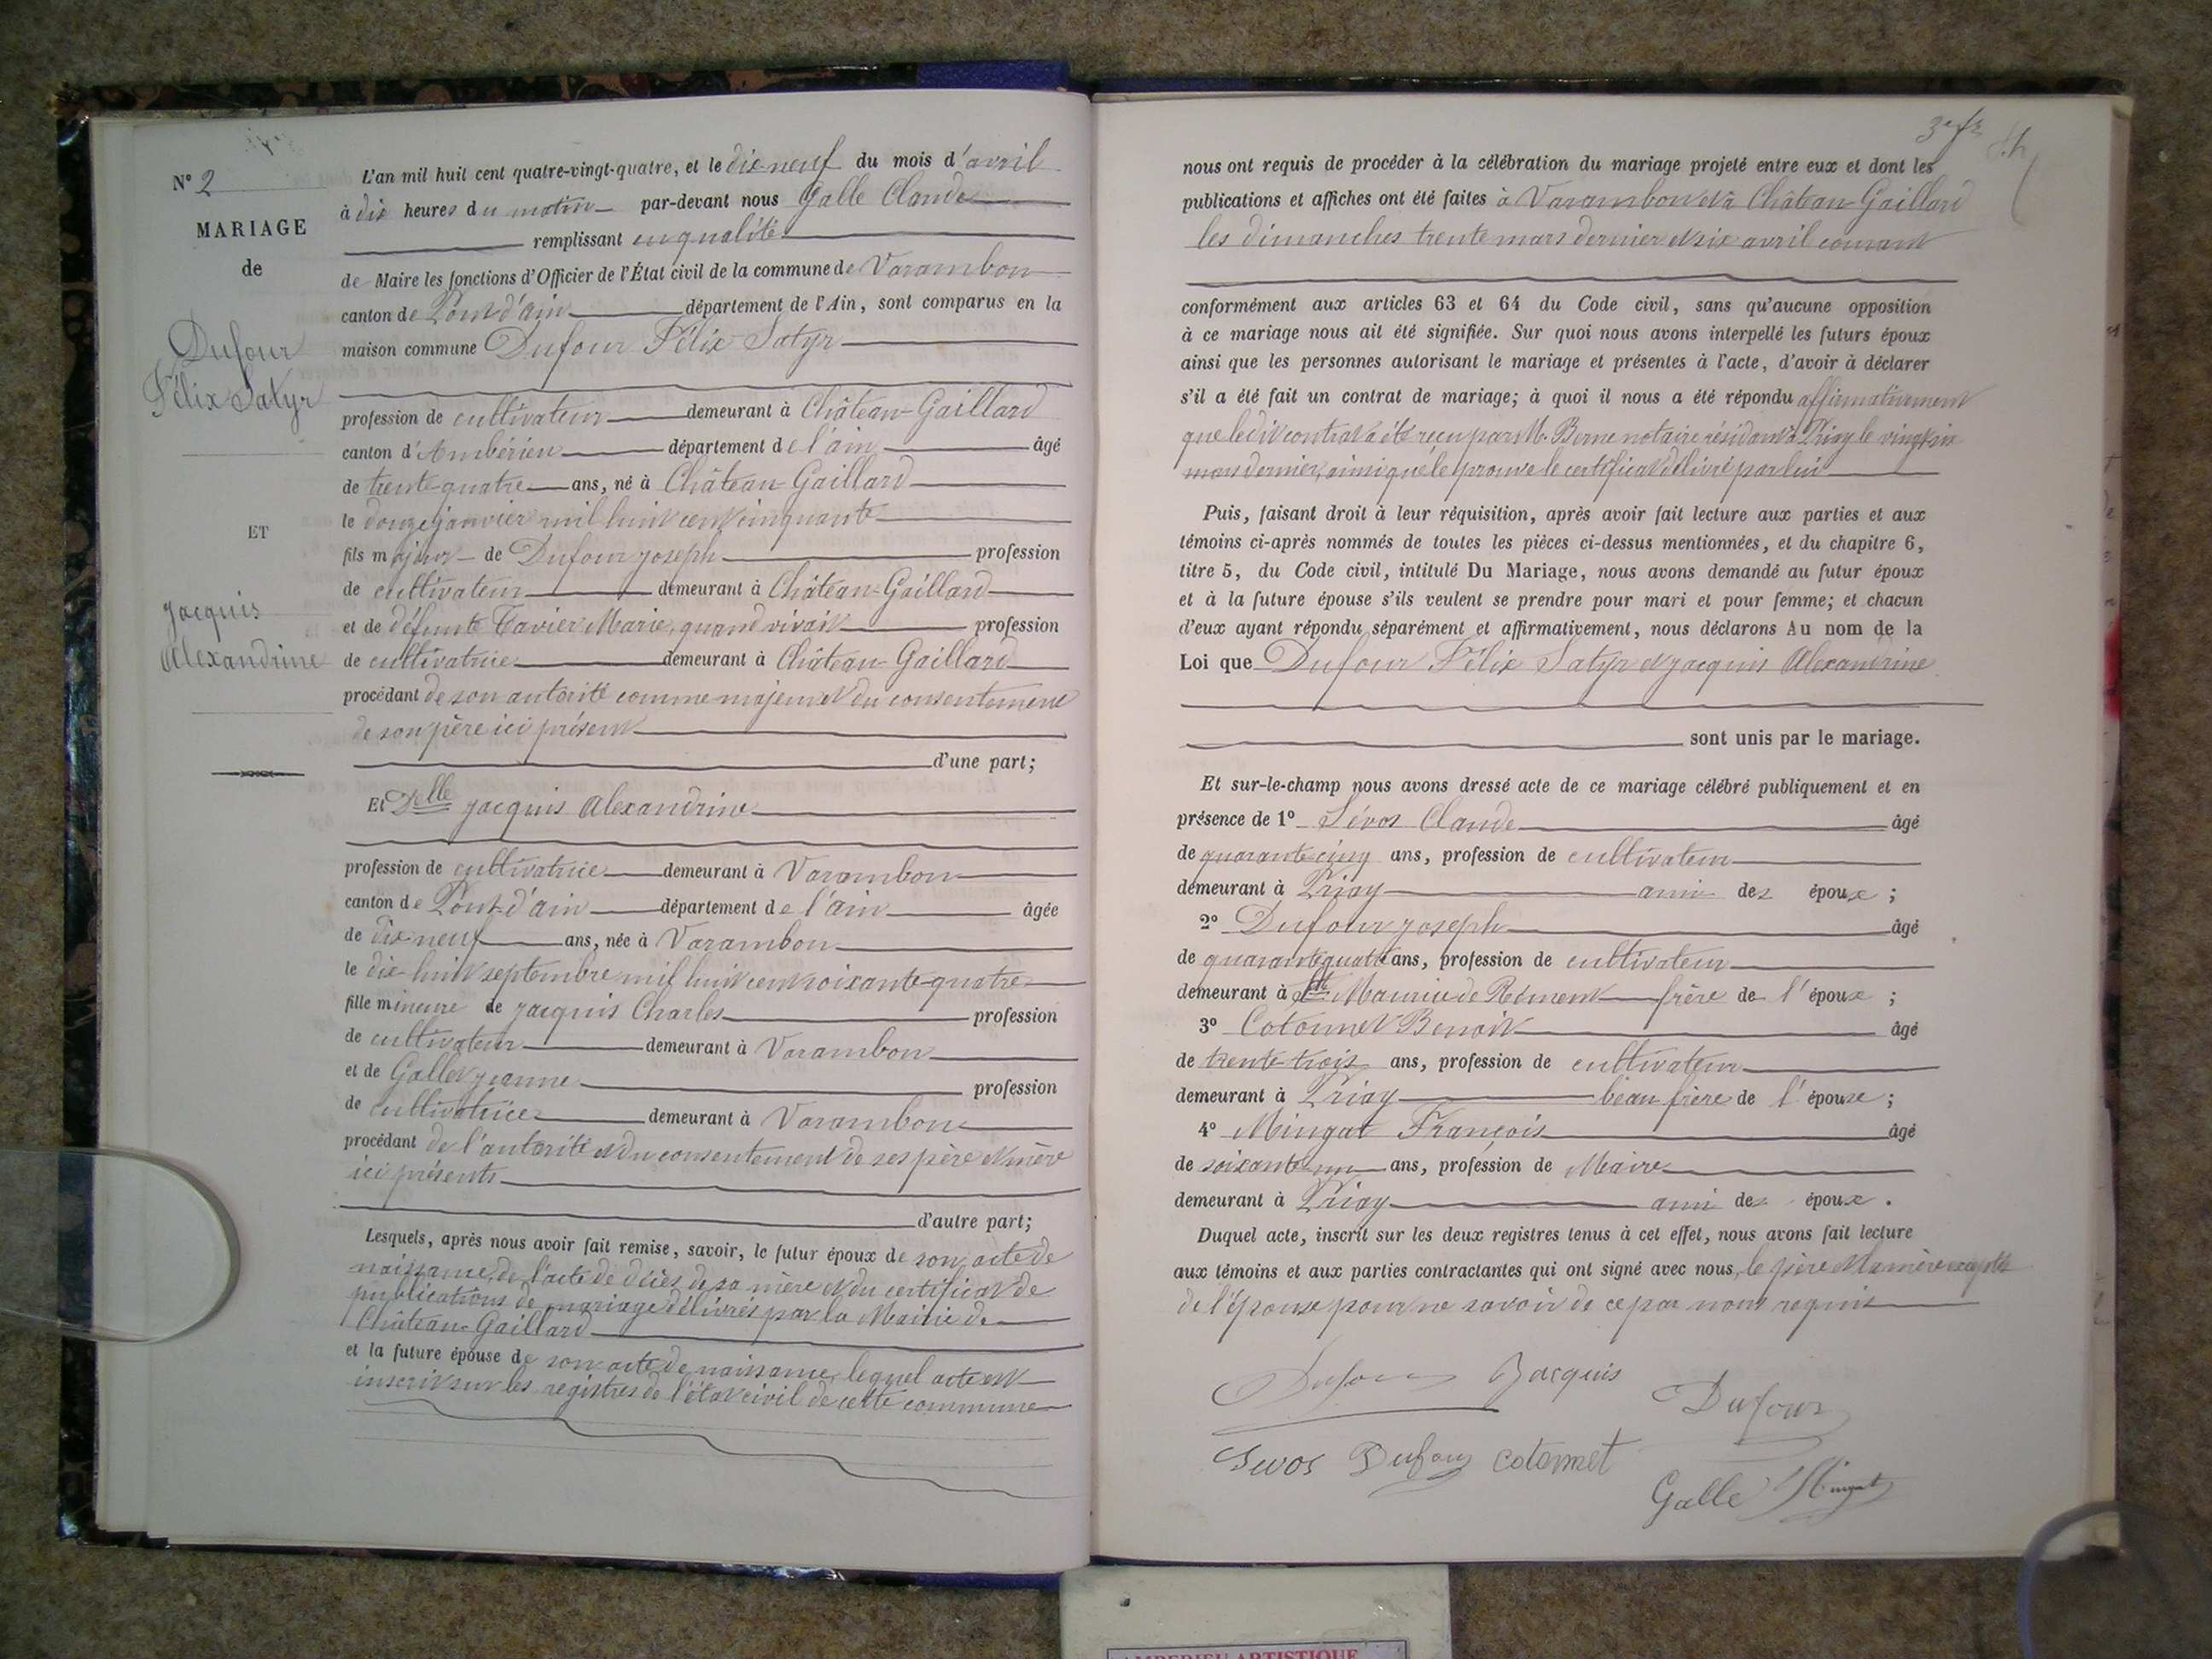 N° 2
MARIAGE
de
Dufour
Félix Satyr
ET
Jacquis
Alexandrine
L'an mil huit cent quatre-vingt-quatre, et le dix-neuf du mois d'avril
à dix heures du matin par-devant nous Galle Claude
remplissant en qualité
de Maire les fonctions d'Officier de l'État civil de la commune de Varambon
canton de Pont d'ain département de l'Ain, sont comparus en la
maison commune Dufour Félix Satyr
profession de cultivateur demeurant à Château-Gaillard
canton d'Ambérieu département de l'ain âgé
de trente-quatre ans, né à Château-Gaillard
le douze janvier mil huit cent cinquante
fils majeur de Dufour joseph profession
de cultivateur demeurant à Château-Gaillard
et de défunte Tavier Marie, quand vivait profession
de cultivatrice demeurant à Château-Gaillard
procédant de son autorité comme majeur et du consentement
de son père ici présent
d'une part;
Et Delle jacquis Alexandrine
profession de cultivatrice demeurant à Varambon
canton de Pont-d'ain département de l'ain âgée
de dix-neuf ans, née à Varambon
le dix-huit septembre mil huit cent soixante-quatre
fille mineure de jacquis Charles profession
de cultivateur demeurant à Varambon
et de Gallet jeanne profession
de cultivatrice demeurant à Varambon
procédant de l'autorité et du consentement de ses père et mère
ici présents
d'autre part;
Lesquels, après nous avoir fait remise, savoir, le futur époux de son acte de
naissance, de l'acte de décès de sa mère et du certificat de
publications de mariage délivrés par la Mairie de
Château-Gaillard
et la future épouse de son acte de naissance, lequel acte est
inscrit sur les registres de l'état civil de cette commune
nous ont requis de procéder à la célébration du mariage projeté entre eux et dont les
publications et affiches ont été faites à Varambon et à Château-Gaillard
les dimanches trente mars dernier et six avril courant
conformément aux articles 63 et 64 du Code civil, sans qu'aucune opposition
à ce mariage nous ait été signifiée. Sur quoi nous avons interpellé les futurs époux
ainsi que les personnes autorisant le mariage et présentes à l'acte, d'avoir à déclarer
s'il a été fait un contrat de mariage; à quoi il nous a été répondu affirmativement
que ledit contrat a été reçu par M. Berne notaire résidant à Priay le vingt six
mars dernier, ainsi que le prouve le certificat délivré par lui
Puis, faisant droit à leur réquisition, après avoir fait lecture aux parties et aux
témoins ci-après nommés de toutes les pièces ci-dessus mentionnées, et du chapitre 6,
titre 5, du Code civil, intitulé Du Mariage, nous avons demandé au futur époux
et à la future épouse s'ils veulent se prendre pour mari et pour femme; et chacun
d'eux ayant répondu séparément et affirmativement, nous déclarons Au nom de la
Loi que Dufour Félix Satyr et jacquis Alexandrine
sont unis par le mariage.
Et sur-le-champ nous avons dressé acte de ce mariage célébré publiquement et en
présence de 1° Sévos Claude âgé
de quarante-cinq ans, profession de cultivateur
demeurant à Priay ami des époux;
2° Dufour joseph âgé
de quarante quatre ans, profession de cultivateur
demeurant à St Maurice de Rémens frère de l'époux;
3° Cotonnet Benoit âgé
de trente-trois ans, profession de cultivateur
demeurant à Priay beau frère de l'épouse;
4° Mingat François âgé
de soixante-un ans, profession de Maire
demeurant à Priay ami des époux.
Duquel acte, inscrit sur les deux registres tenus à cet effet, nous avons fait lecture
aux témoins et aux parties contractantes qui ont signé avec nous, le père et la mère exceptés
de l'épouse pour ne savoir de ce par nous requis
Dufour Jacquis
Dufour
Sevos Dufour cotonnet
Galle Mingat
AMBERIEU ARTISTIQUE